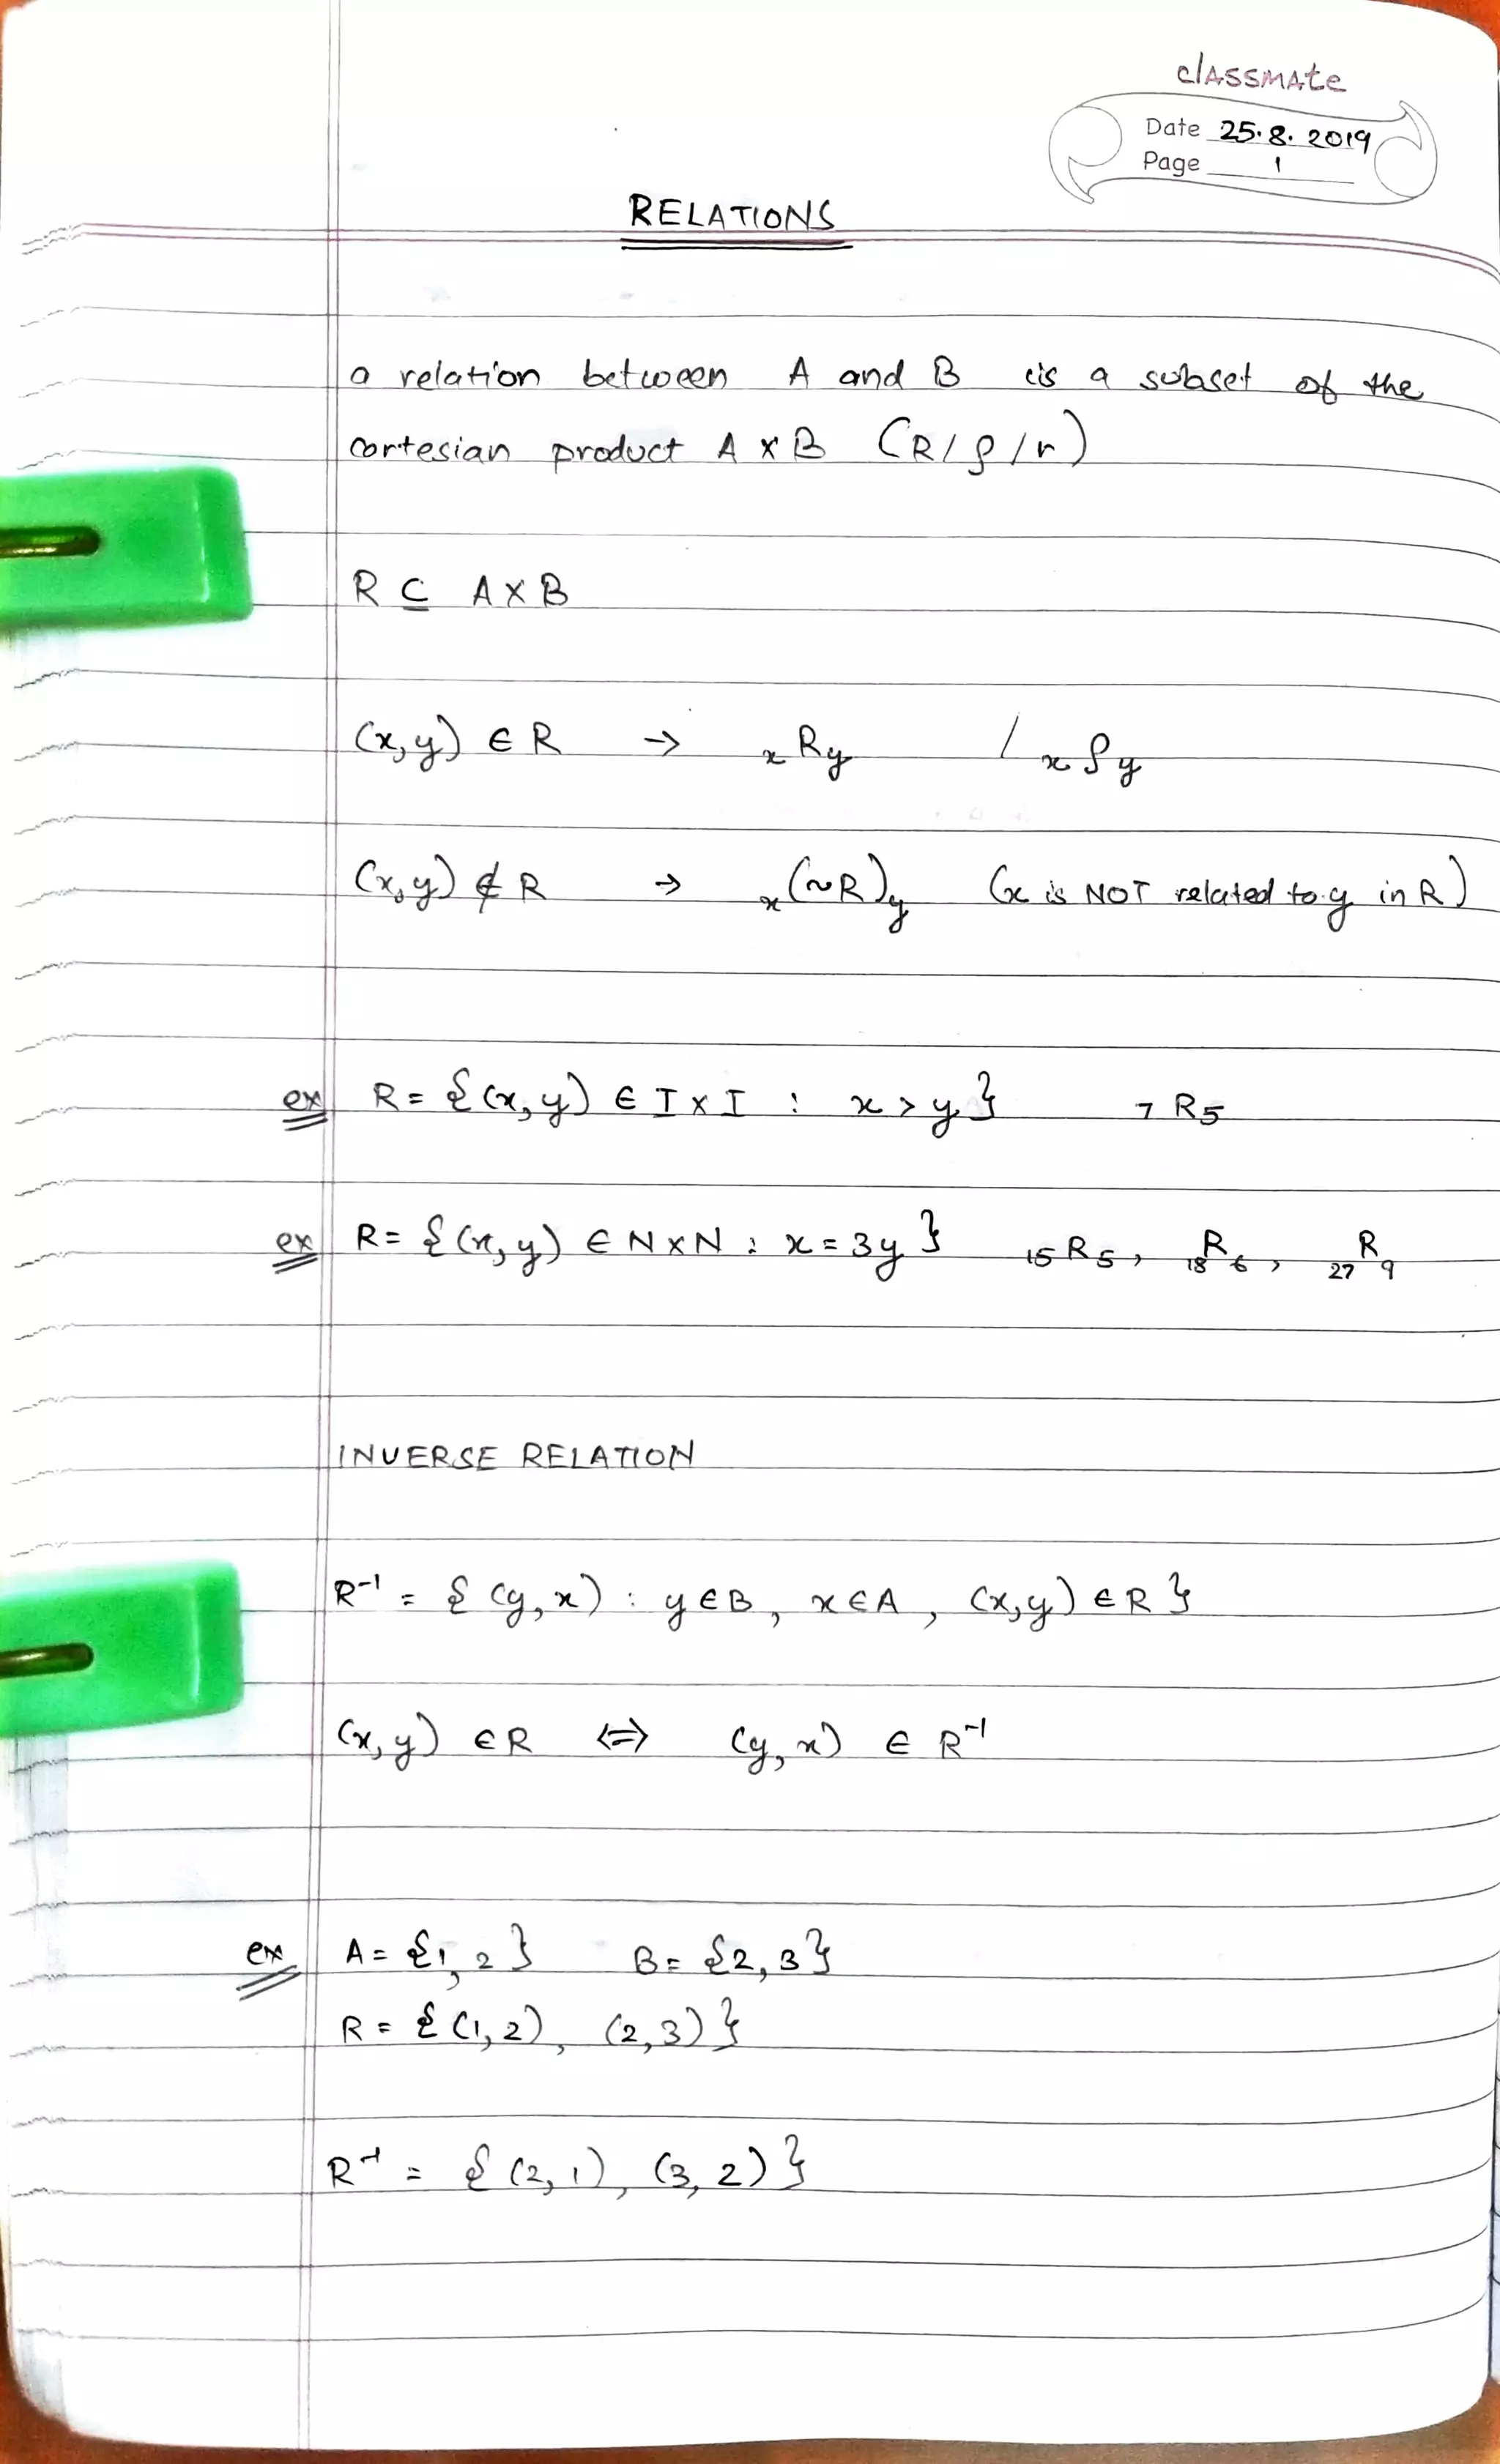 classmate
Date 25.8.2019
Page 1
RELATIONS
a relation between A and B is a subset of the
cartesian product A × B (R/ρ/r)
R ⊆ A × B
(x,y) ∈ R → xRy / xρy
(x,y) ∉ R → x(~R)y (x is NOT related to y in R)
ex R = {(x,y) ∈ I × I : x > y} 7R5
ex R = {(x,y) ∈ N×N : x = 3y} 15R5, 18R6, 27R9
INVERSE RELATION
R⁻¹ = {(y,x) : y∈B, x∈A, (x,y) ∈ R}
(x,y) ∈ R <=> (y,x) ∈ R⁻¹
ex A = {1,2} B = {2,3}
R = {(1,2), (2,3)}
R⁻¹ = {(2,1), (3,2)}